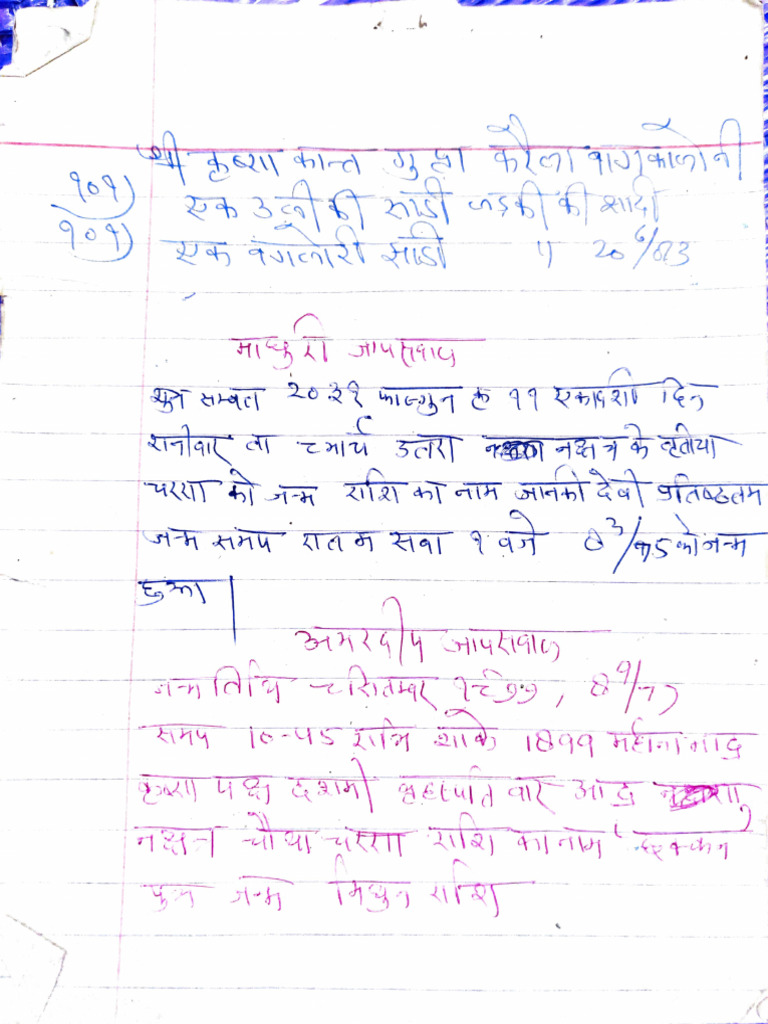 श्री कृष्णा कान्त गुप्ता करैला बाग कालोनी
१०१) एक उली की साडी लडकी की शादी
१०१) एक बंगलोरी साडी " 20/6/83
माधुरी जायसवाल
शुभ सम्वत २०३१ फाल्गुन कृ ११ एकादशी दिन
शनीवार ता ८ मार्च उतरा नक्षत्र के तृतीया
चरण को जन्म राशि का नाम जानकी देवी
जन्म समय रात म सवा १ बजे 8/3/75 को जन्म
हुआ |
अमरदीप जायसवाल
जन्म तिथि ८ सितम्बर १९७७, 8/9/77
समय 10-45 रात्रि शाके 1899 महीना भाद्र
कृष्णा पक्ष दशमी बृहस्पति वार आद्रा
नक्षत्र चौथा चरण राशि का नाम
पुत्र जन्म मिथुन राशि